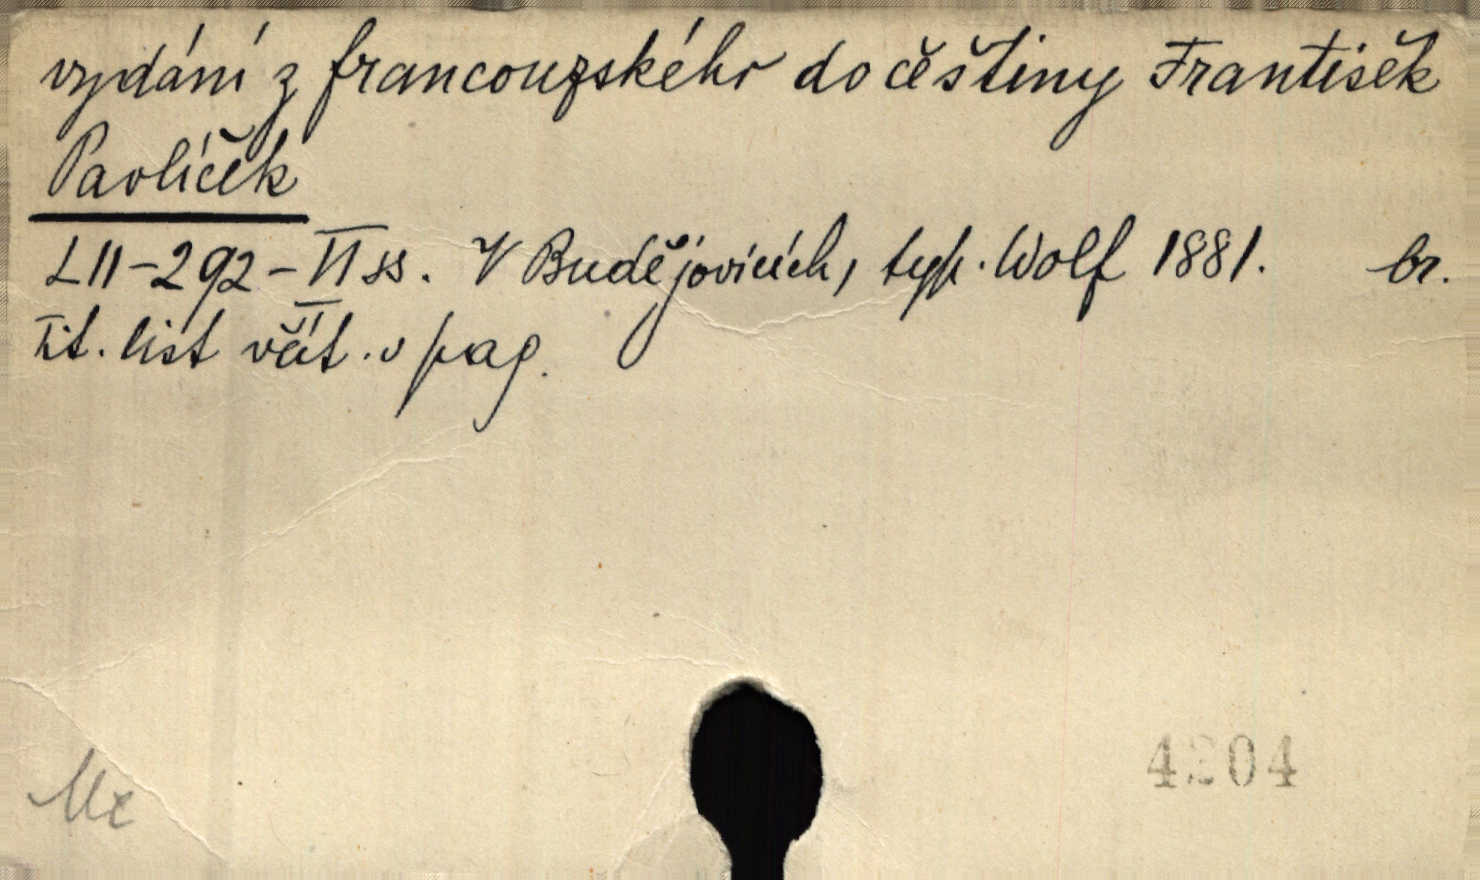 vydání z francouzského do češtiny František
Pavlíček
LII-292-VI ss. V Budějovicích, typ. Wolf 1881. br.
Tit. list včít. v pag.
4204